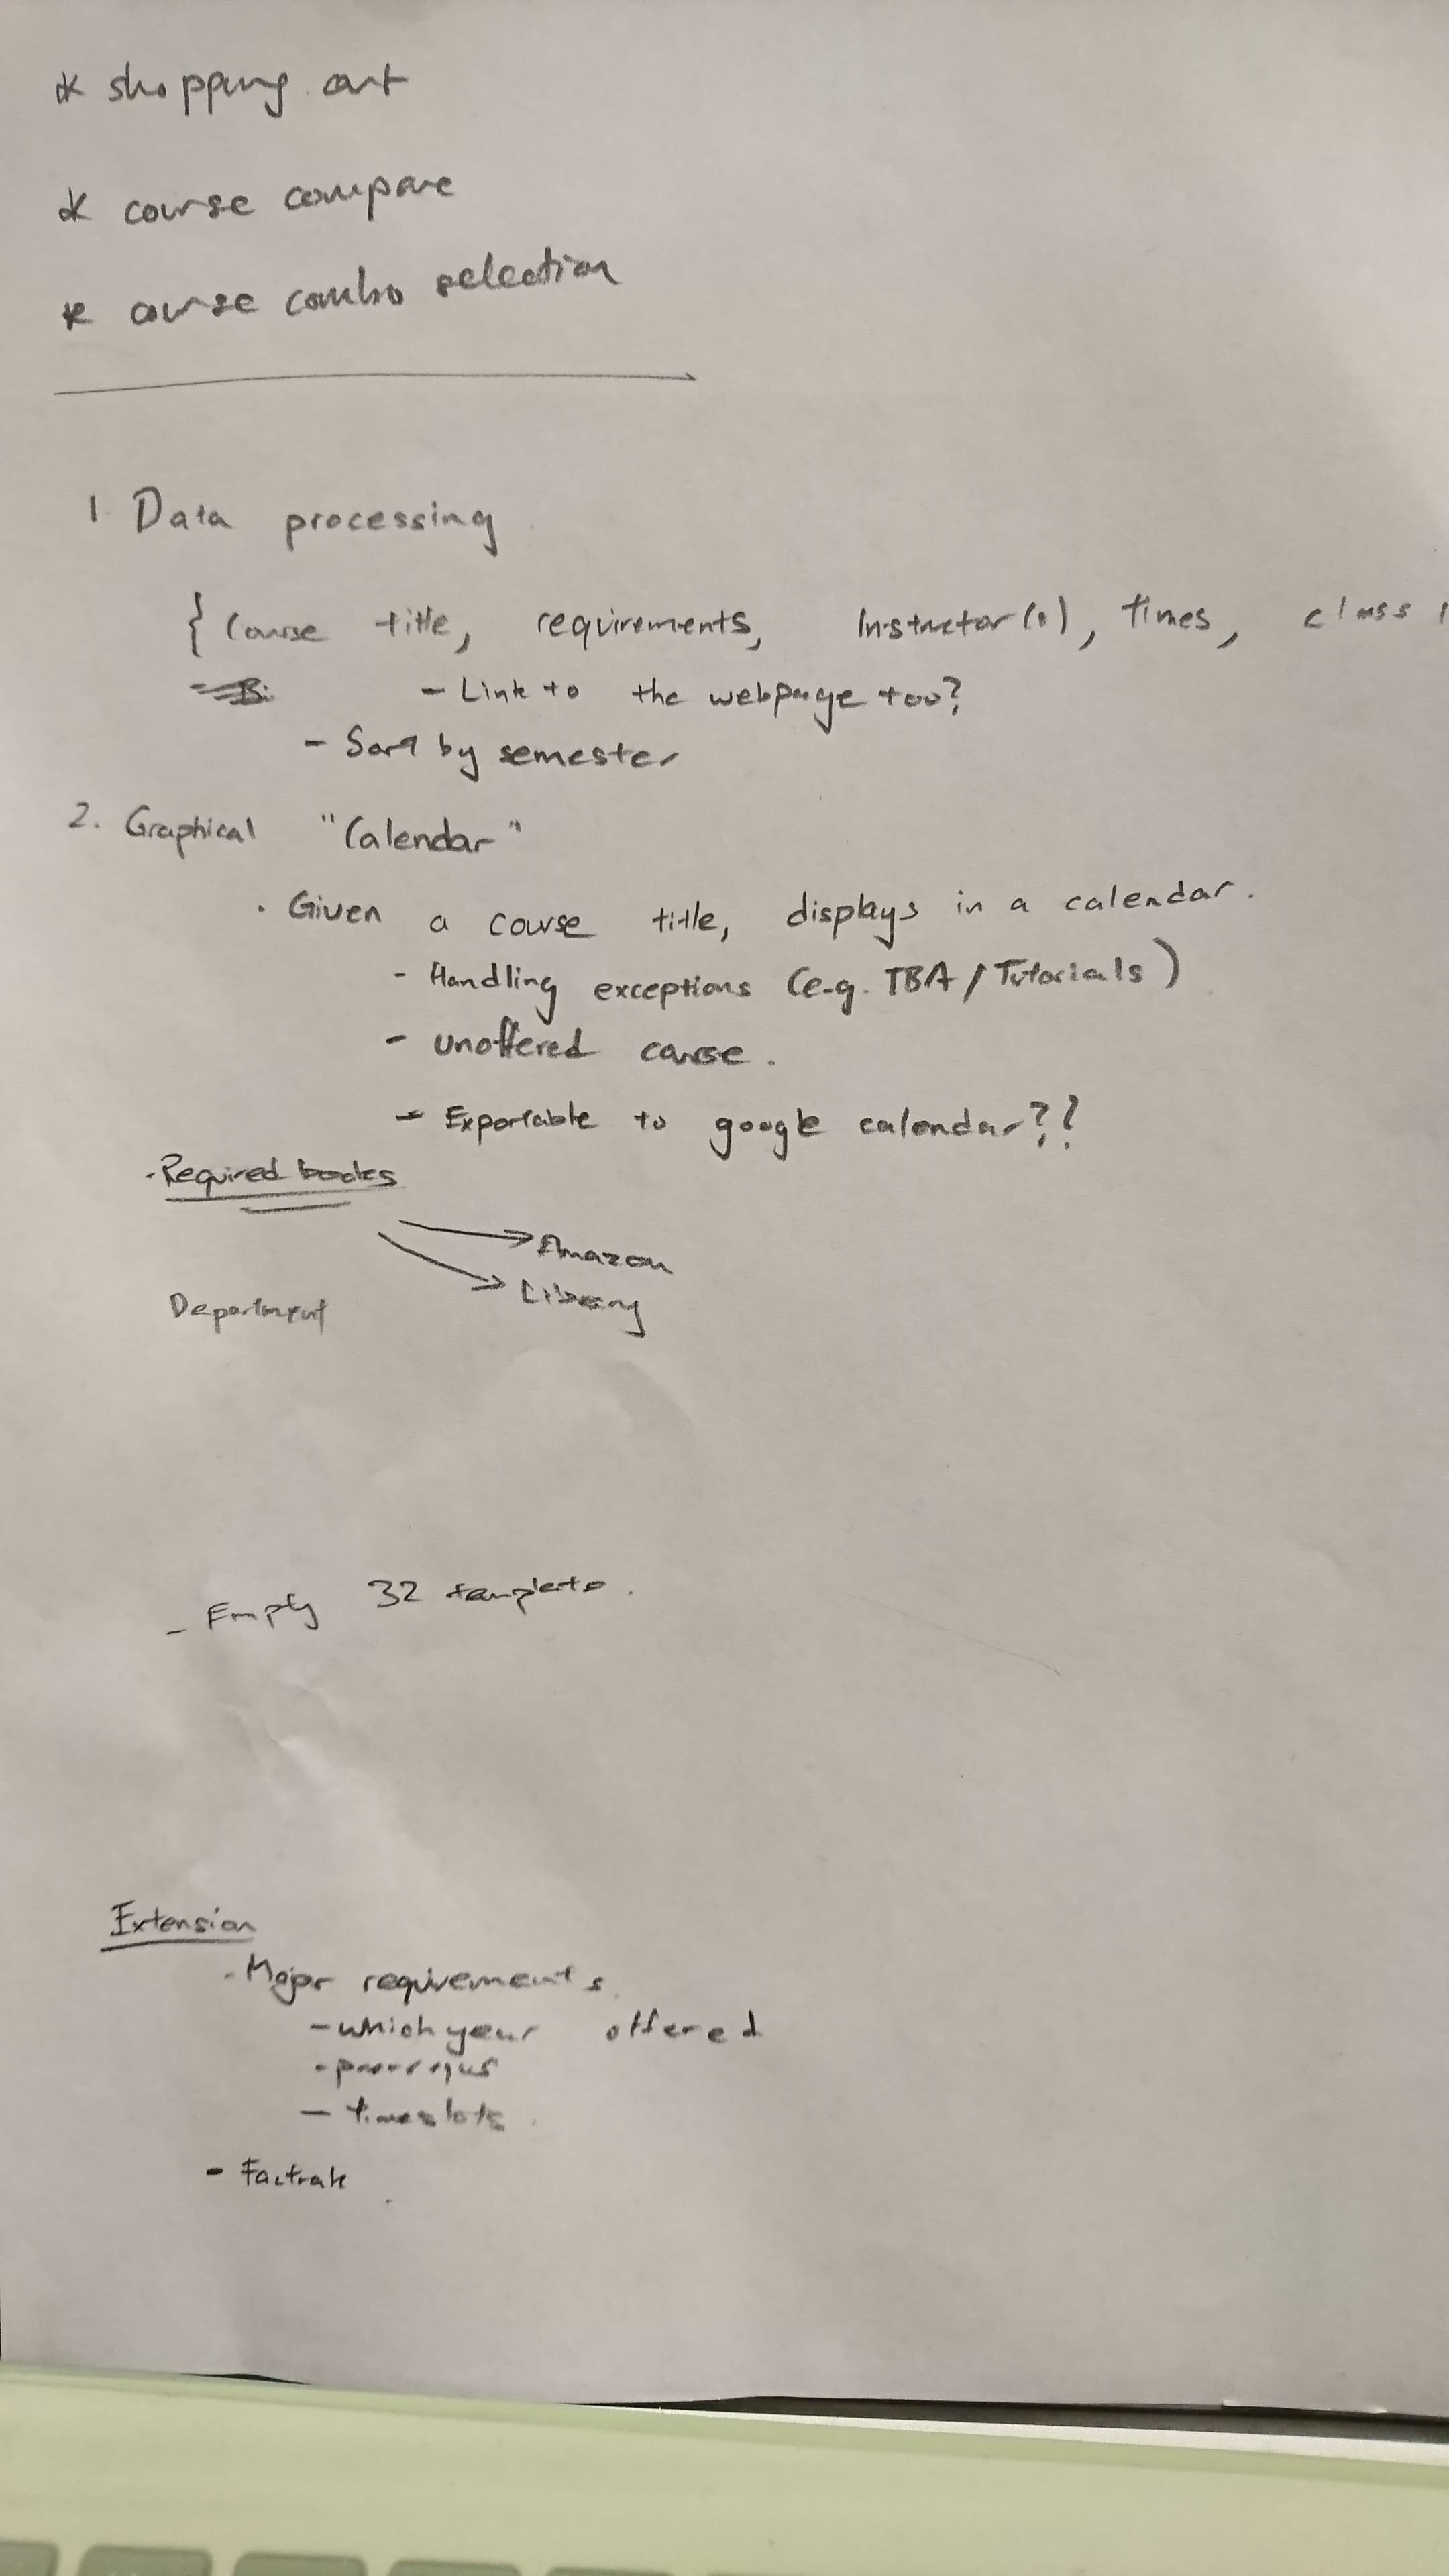 * shopping cart
* course compare
* course combo selection
1. Data processing
{ Course title, requirements, Instructor(s), times, class
- Link to the webpage too?
- Sort by semester
2. Graphical "Calendar"
· Given a course title, displays in a calendar.
- Handling exceptions (e.g. TBA / Tutorials)
- unoffered course.
- Exportable to google calendar??
· Required books
Amazon
Library
Department
- Empty 32 template.
Extension
· Major requirements
- which year offered
- timeslots
- Factrak